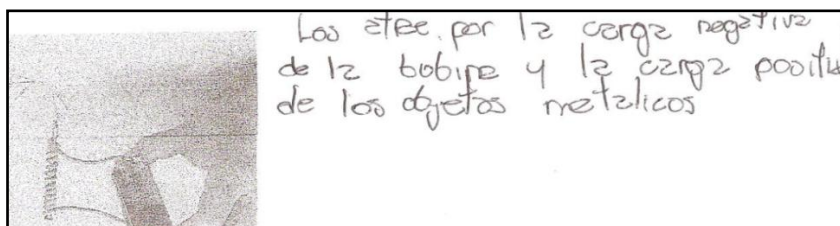 Los atee por la carga negativa
de la bobina y la carga positiv
de los objetos metalicos